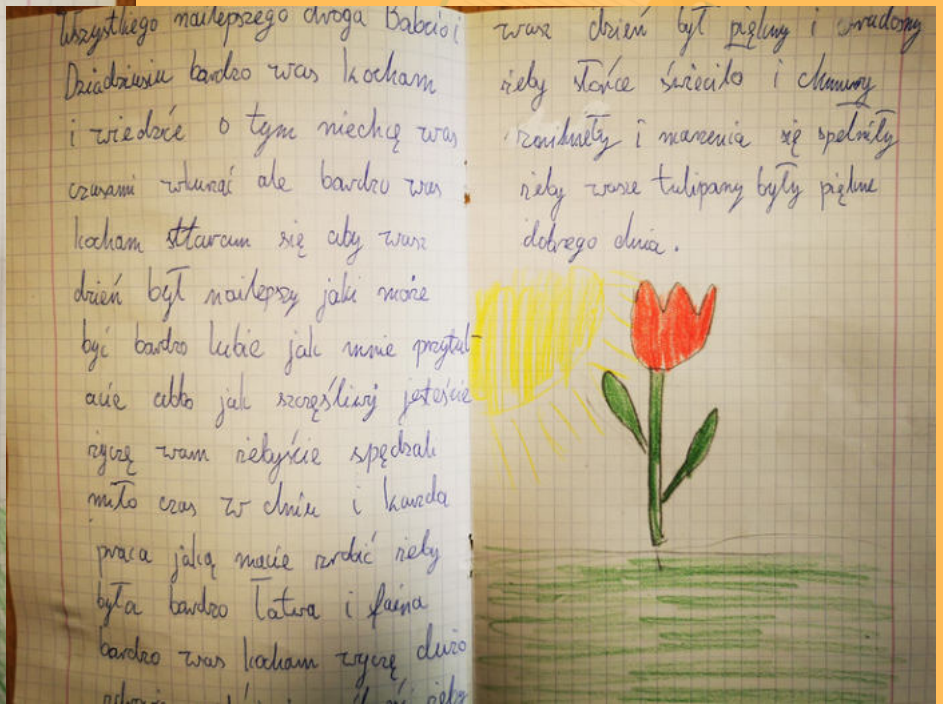 Wszystkiego nailepszego droga Babcio i
Dziadziusiu bardzo was kocham
i wiedzcie o tym niechcę was
czasami wkurzać ale bardzo was
kocham sttaram się aby wasz
dzień był nailepszy jaki może
być bardzo lubie jak mnie przytul-
acie abbo jak szczęśliwj jesteście
rzyczę wam żebyście spędzali
miło czas w dniu i karzda
praca jaką macie zrobić żeby
była bardzo łatwa i faina
bardzo was kocham rzyczę dużo
żeby
wasz dzień był piękny i uradosny
żeby słońce świeciło i chmury
zniknęły i marzenia się spełniły
żeby wasze tulipany były piękne
dobrego dnia.